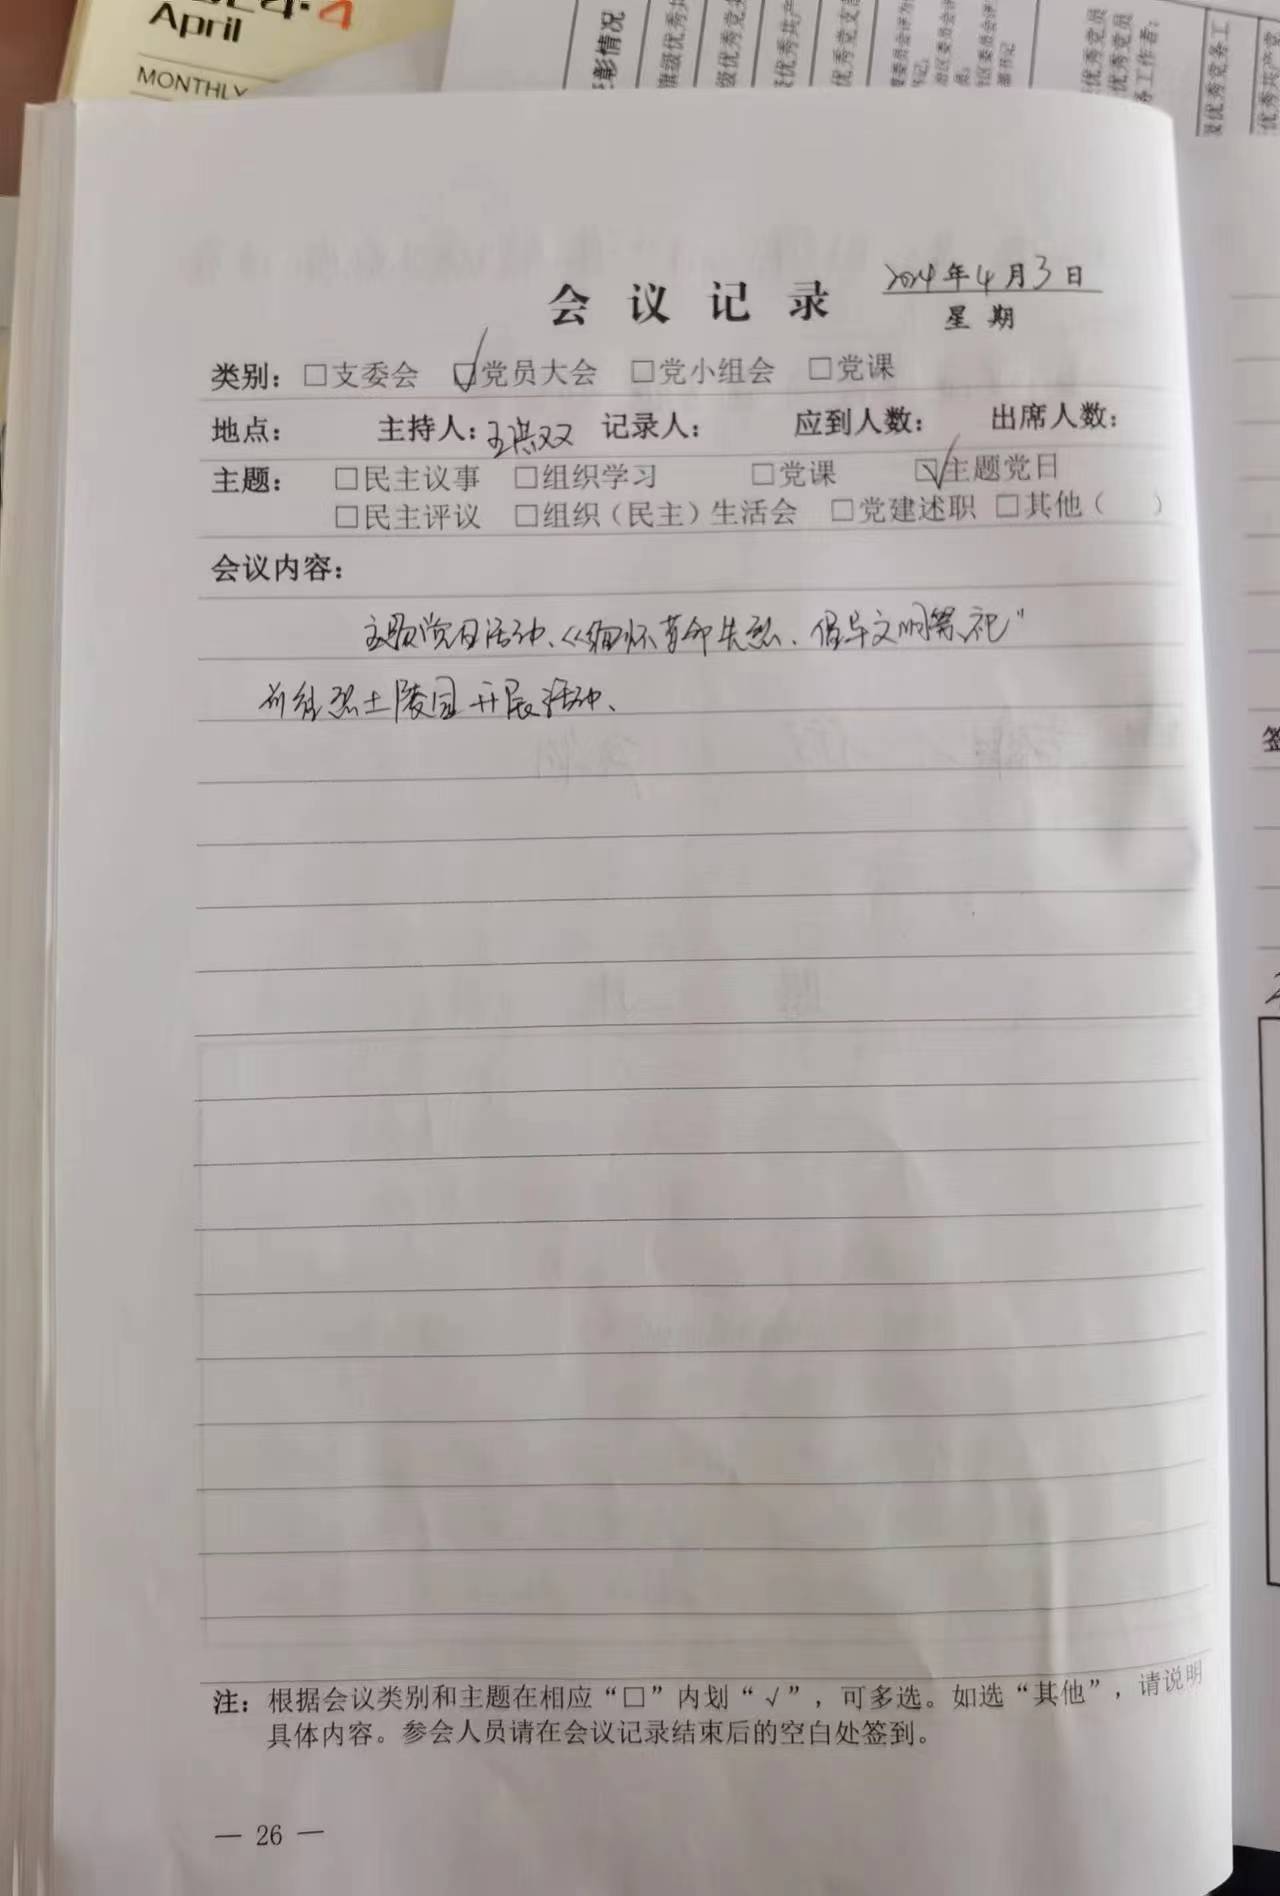 April
MONTHLY
会议记录
2024年4月3日
星期
类别：□支委会 ☑党员大会 □党小组会 □党课
地点： 主持人：王洪双 记录人： 应到人数： 出席人数：
主题： □民主议事 □组织学习 □党课 ☑主题党日
□民主评议 □组织（民主）生活会 □党建述职 □其他（ ）
会议内容：
主题党日活动、《缅怀革命先烈、倡导文明祭祀"
前往烈士陵园开展活动、
注：根据会议类别和主题在相应“□”内划“√”，可多选。如选“其他”，请说明
具体内容。参会人员请在会议记录结束后的空白处签到。
— 26 —